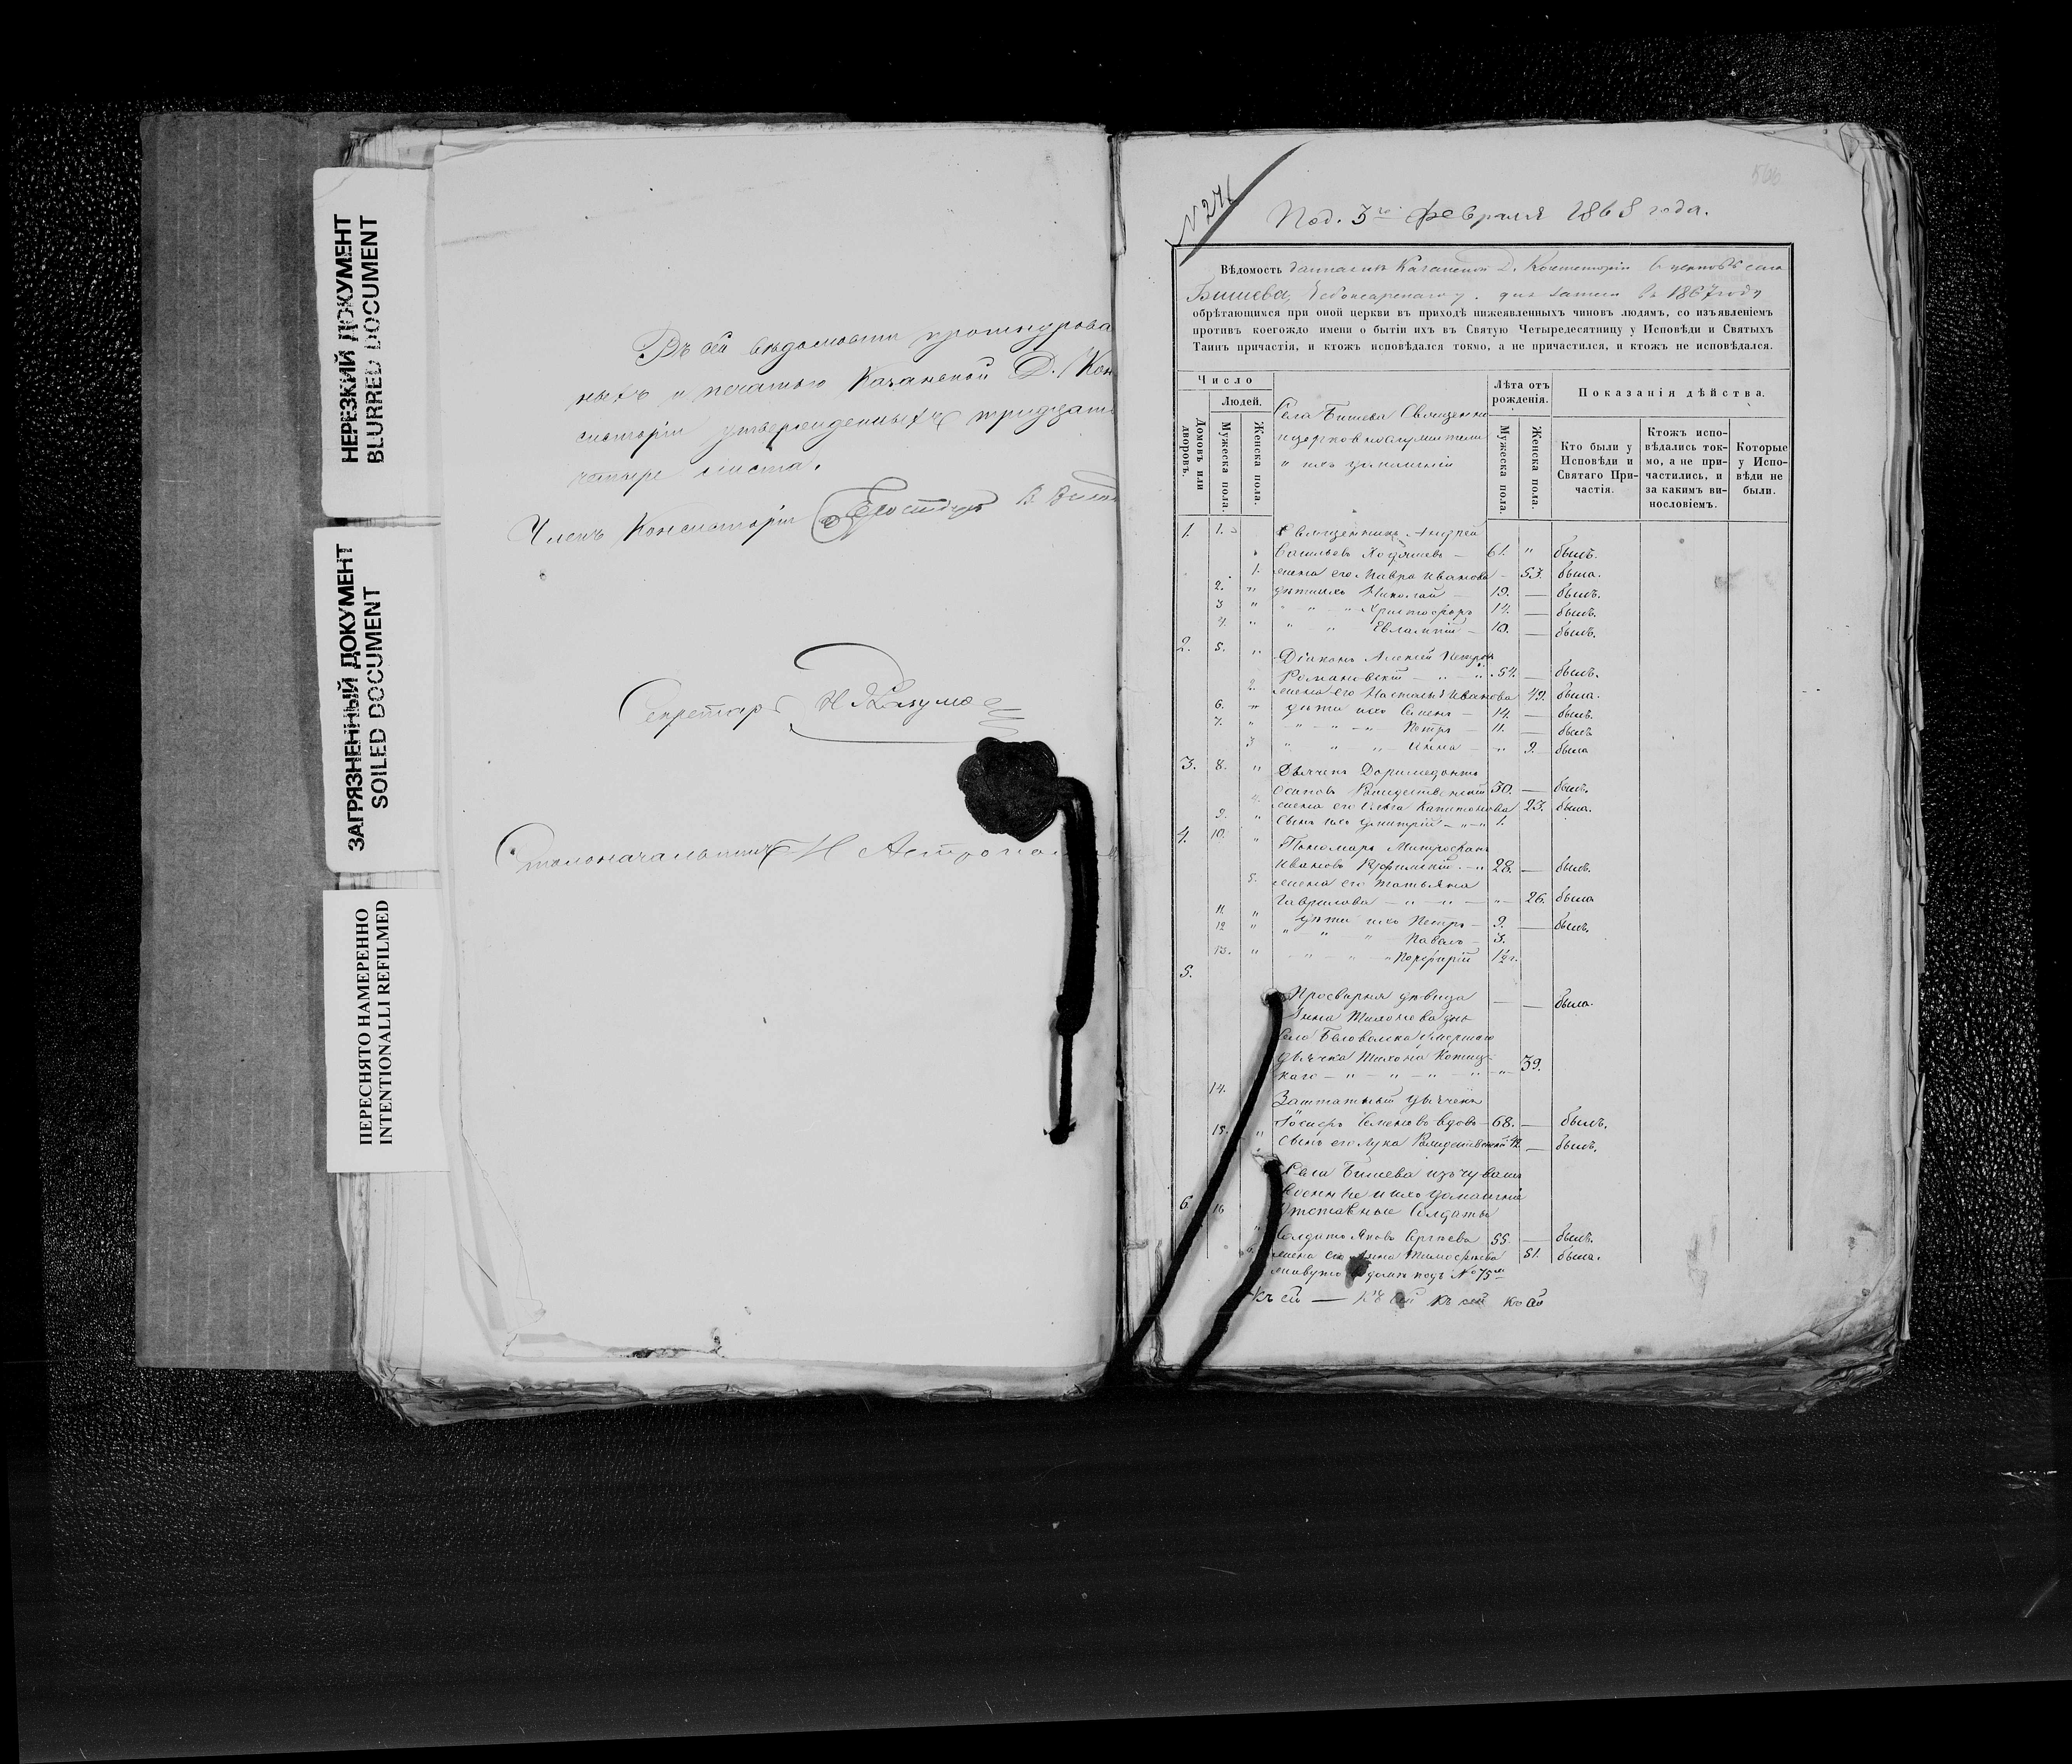 НЕРЕЗКИЙ ДОКУМЕНТ
BLURRED DOCUMENT
ЗАГРЯЗНЕННЫЙ ДОКУМЕНТ
SOILED DOCUMENT
ПЕРЕСНЯТО НАМЕРЕННО
INTENTIONALLI REFILMED
Въ сей вѣдомости прошнурова
ныхъ и печатью Казанской Д. Кон
систоріи утвержденныхъ тридцать
четыре листа.
Членъ Консисторіи
Секретарь
Столоначальникъ
Под. 3го Февраля 1868 года.
Вѣдомость Казанской Д. Консисторіи церковь села
Бишева, Чебоксарскаго у. въ 1867 году
обрѣтающимся при оной церкви въ приходѣ нижеявленныхъ чиновъ людямъ, со изъявленіемъ
противъ коегождо имени о бытіи ихъ въ Святую Четыредесятницу у Исповѣди и Святыхъ
Таинъ причастія, и ктожъ исповѣдался токмо, а не причастился, и ктожъ не исповѣдался.
Число
Людей.
Домовъ или дворовъ.
Мужеска пола.
Женска пола.
Села Бишева Священно
и церковнослужители
и ихъ домашніи
Лѣта отъ рожденія.
Мужеска пола.
Женска пола.
Показанія дѣйства.
Кто были у Исповѣди и Святаго Причастія.
Ктожъ исповѣдались токмо, а не причастились, и за какимъ виновіемъ.
Которые у Исповѣди не были.
1. 1. Священникъ Андрей
Васильевъ — 61. " былъ.
1. жена его Мавра Иванова — 53. была.
2. " дѣти ихъ Николай — 19. — былъ.
3 " " " " Христофоръ 14. — былъ.
4. " " " Евлампій — 10. — былъ.
2. 5. " Діаконъ Алексій Петровъ
Романовскій — " — " 54. — былъ.
2. жена его Наталья Иванова 49. была.
6. " дѣти ихъ Семенъ — 14. — былъ.
7. " " — " — " Петръ — 11. — былъ
3 " " " — Анна — " 9. — была
3. 8. " Дьячекъ Доримедонтъ
Осиповъ Рождественскій 30. — былъ.
4. жена его Капитонова 23. была.
9. " сынъ ихъ Димитрій — " — " 1.
4. 10. " Пономарь Митрофанъ
Ивановъ — " 28. — былъ.
5. жена его Татьяна
Гаврилова — " — " — " — 26. была
11. " дѣти ихъ Петръ — 9. — былъ.
12 " " " " Павелъ — 3.
13. " — " — " — " Порфирій 1/2 г.
5.
Просвирня дѣвица — — была.
Анна Тихонова дочь
села Беловолжска умершаго
дьячка Тихона
каго — " — " — " — " — 39.
14. Заштатный дьячекъ
Іосифъ Семеновъ вдовъ — 68. — былъ.
15. " сынъ его Лука Рождественскій — былъ.
Села Бишева изъ чувашъ
военные и ихъ домашніи
6 16 Отставные Солдаты
Солдатъ Яковъ Сергѣевъ 55. — былъ.
жена его Анна Тимофѣева 51. была.
живутъ въ домѣ подъ № 75м
къ сей — къ сей къ сей къ сей